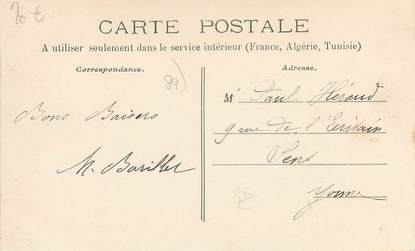 20 €
CARTE POSTALE
A utiliser seulement dans le service intérieur (France, Algérie, Tunisie)
Correspondance.
Adresse.
89)
M Paul Héraud
9 rue de l'Ecrivain
Sens
Yonne
Bons Baisers
M. Barillet